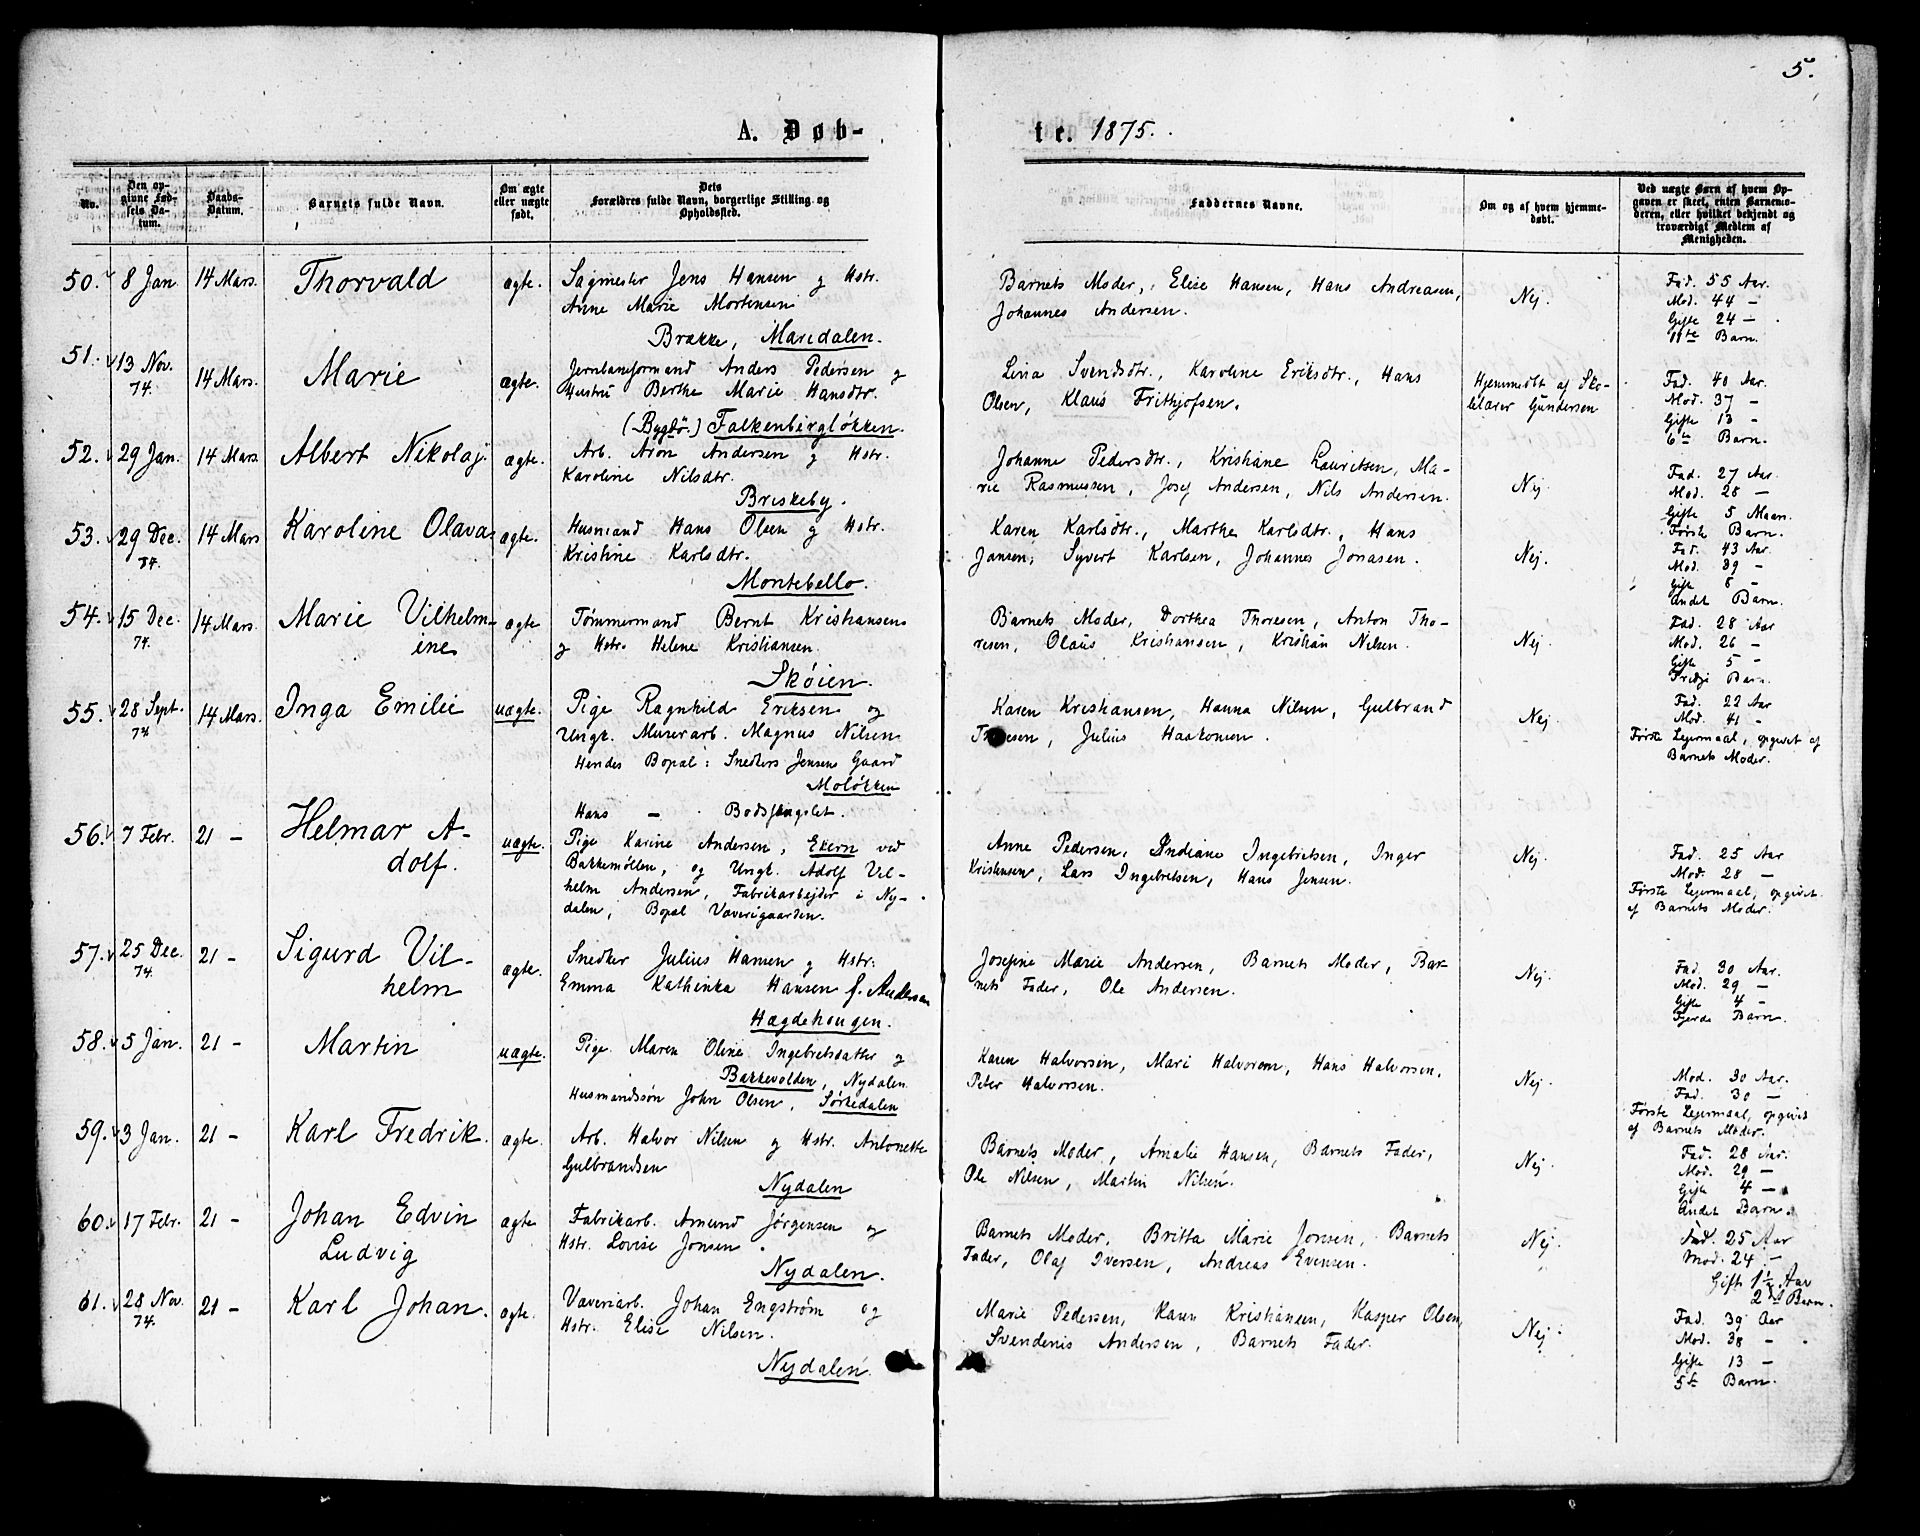 5.
A. Døb-
te. 1875.
Nr.
Den op-
givne Fød-
sels Da-
tum.
Daabs-
Datum.
Barnets fulde Navn.
Om ægte
eller uægte
født.
Dets
Forældres fulde Navn, borgerlige Stilling og
Opholdssted.
Faddernes Navne.
Om og af hvem hjemme-
døbt.
Ved uægte Børn af hvem Op-
gaven er skeet, enten Barnemo-
deren, eller hvilket bekjendt og
troværdigt Medlem af
Menigheden.
50. 8 Jan. 14 Mars. Thorvald ægte.
Sagmester Jens Hansen og Hstr.
Anne Marie Mortensen
Brække, Maridalen.
Barnets Moder, Elise Hansen, Hans Andreasen,
Johannes Andersen.
Nej.
Fad. 55 Aar.
Mod. 44 –
Gifte 24 –
11te Barn.
51. 13 Nov. 74. 14 Mars. Marie ægte.
Jernbaneformand Anders Pedersen og
Hustru Berthe Marie Hansdtr.
(Bygdö.) Falkenbergløkken.
Lina Svendsdtr., Karoline Eriksdtr., Hans
Olsen, Klaus Frithjofsen.
Hjemmedbt af Sko-
lelærer Gundersen
Fad. 40 Aar.
Mod. 37 –
Gifte 13 –
6te Barn.
52. 29 Jan. 14 Mars Albert Nikolaj. ægte.
Arb. Aron Andersen og Hstr.
Karoline Nilsdtr.
Briskeby.
Johanne Pedersdtr., Kristiane Lauritsen, Ma-
rie Rasmussen, Josef Andersen, Nils Andersen.
Nej.
Fad. 27 Aar.
Mod. 28 –
Gifte 5 Maan.
Første Barn.
53. 29 Dec. 74. 14 Mars Karoline Olava. ægte.
Husmand Hans Olsen og Hstr.
Kristine Karlsdtr.
Montebello.
Karen Karlsdtr., Marthe Karlsdtr., Hans
Jansen, Syvert Karlsen, Johannes Jonasen.
Nej.
Fad. 43 Aar.
Mod. 39 –
Gifte 8 –
Andet Barn.
54. 15 Dec. 74. 14 Mars. Marie Vilhelm-
ine ægte
Tømmermand Bernt Kristiansen
og Hstr. Helene Kristiansen.
Skøien.
Barnets Moder, Dorthea Thoresen, Anton Tho-
resen, Olaus Kristiansen, Kristian Nilsen.
Nej.
Fad. 28 Aar
Mod. 26 –
Gifte 5 –
Tredje Barn.
55. 28 Sept. 74 14 Mars. Inga Emilie uægte.
Pige Ragnhild Eriksen og
Ungk. Murerarb. Magnus Nilsen
Hendes Bopæl: Snedker Jensens Gaard
Moløkken
Hans – Bodsfængslet.
Karen Kristiansen, Hanna Nilsen, Gulbrand
Julius Haakonsen.
Nej
Fad. 22 Aar
Mod. 41 –
Første Lejermaal, opgivet af
Barnets Moder.
56. 7 Febr. 21 – Helmar A-
dolf. uægte.
Pige Karine Andersen, Ekern ved
Bakkemøllen, og Ungk. Adolf Vil-
helm Andersen, Fabrikarbejder i Ny-
dalen, Bopæl Væverigaarden.
Anne Pedersen, Indiane Ingebretsen, Inger
Kristensen, Lars Ingebretsen, Hans Jensen.
Nej.
Fad. 25 Aar
Mod. 28 –
Første Lejermaal, opgivet
af Barnets Moder.
57. 25 Dec. 74. 21 – Sigurd Vil-
helm ægte.
Snedker Julius Hansen og Hstr.
Emma Kathinka Hansen f. Andersen
Hægdehaugen.
Josefine Marie Andersen, Barnets Moder, Bar-
nets Fader, Ole Andersen.
Nej.
Fad. 30 Aar.
Mod. 29 –
Gifte 4 –
Fjerde Barn.
58. 5 Jan. 21 – Martin uægte.
Pige Maren Oline Ingebretsdatter og
Bakkevolden, Nydalen.
Husmandssøn John Olsen, Sørkedalen
Karen Halvorsen, Mari Halvorsen, Hans Halvorsen,
Peter Halvorsen.
Nej.
Mod. 30 Aar.
Fad. 30 –
Første Lejermaal, opgivet
af Barnets Moder.
59. 3 Jan. 21 – Karl Fredrik. ægte.
Arb. Halvor Nilsen og Hstr. Antonette
Gulbrandsen
Nydalen
Barnets Moder, Amalie Hansen, Barnets Fader,
Ole Nilsen, Martin Nilsen.
Nej.
Fad. 28 Aar.
Mod. 29 –
Gifte 4 –
Andet Barn.
60. 17 Febr. 21 – Johan Edvin
Ludvig ægte
Fabrikarb. Amund Jörgensen og
Hstr. Lovise Jonsen.
Nydalen.
Barnets Moder, Britta Marie Jonsen, Barnets
Fader, Olaf Iversen, Andreas Evensen.
Nej.
Fad. 25 Aar
Mod. 24 –
Gifte 1½ Aar
2det Barn.
61. 28 Nov. 74. 21 – Karl Johan. ægte.
Væveriarb. Johan Engstrøm og
Hstr. Elise Nilsen.
Nydalen.
Marie Pedersen, Karen Kristiansen, Kasper Olsen,
Svendenis Andersen, Barnets Fader.
Nej.
Fad. 39 Aar
Mod. 38 –
Gifte 13 –
5te Barn.